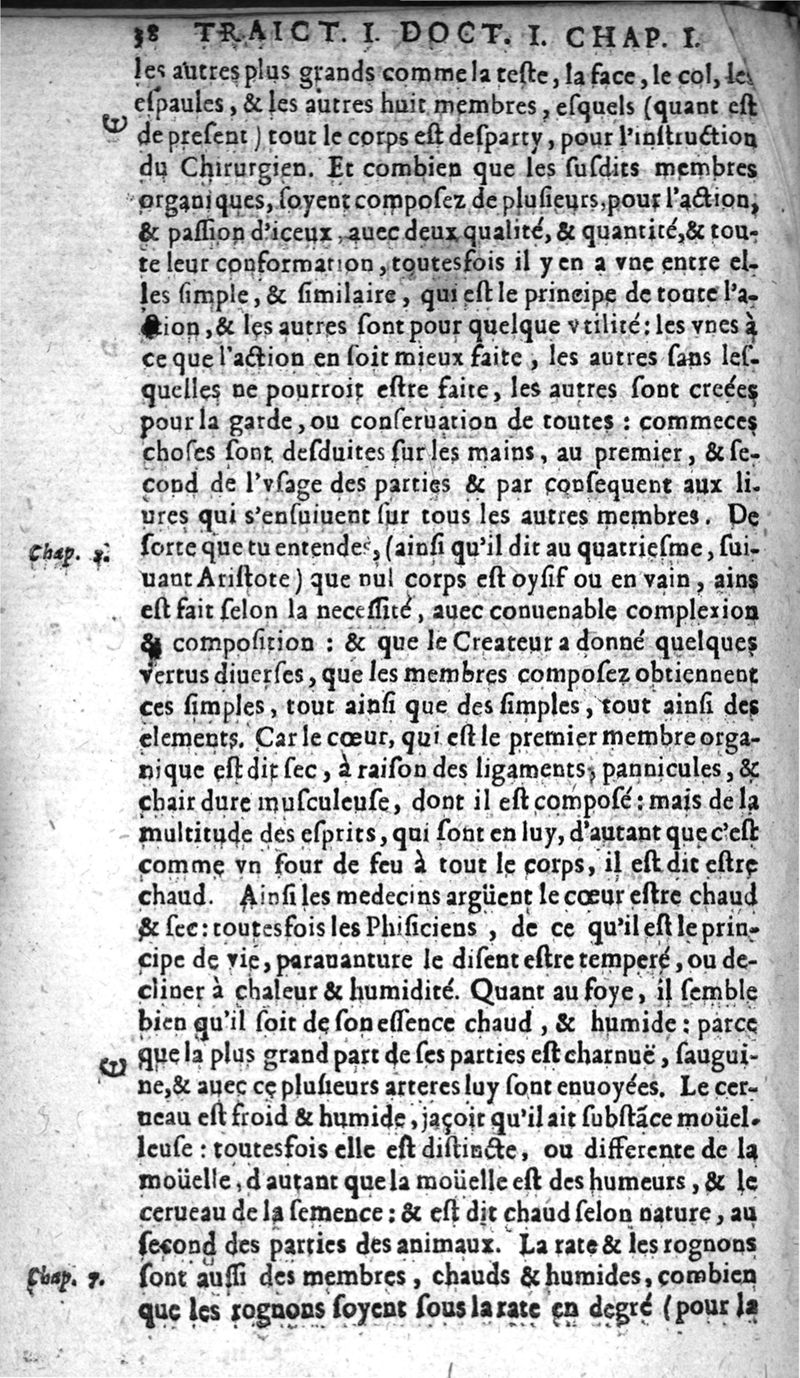 38 TRAICT. I. DOCT. I. CHAP. I.
les autres plus grands comme la teſte, la face, le col, les
eſpaules, & les autres huit membres, eſquels (quant eſt
de preſent) tout le corps eſt deſparty, pour l'inſtruction
du Chirurgien. Et combien que les ſuſdits membres
organiques, ſoyent compoſez de pluſieurs, pour l'action,
& paſſion d'iceux, auec deux qualité, & quantité, & tou-
te leur conformation, toutesfois il y en a vne entre el-
les ſimple, & ſimilaire, qui eſt le principe de toute l'a-
ction, & les autres ſont pour quelque vtilité: les vnes à
ce que l'action en ſoit mieux faite, les autres ſans leſ-
quelles ne pourroit eſtre faite, les autres ſont creées
pour la garde, ou conſeruation de toutes : comme ces
choſes ſont deſduites ſur les mains, au premier, & ſe-
cond de l'vſage des parties & par conſequent aux li-
ures qui s'enſuiuent ſur tous les autres membres. De
Chap. 3. ſorte que tu entendes, (ainſi qu'il dit au quatrieſme, ſui-
uant Ariſtote) que nul corps eſt oyſif ou en vain, ains
eſt fait ſelon la neceſſité, auec conuenable complexion
& compoſition : & que le Createur a donné quelques
vertus diuerſes, que les membres compoſez obtiennent
ces ſimples, tout ainſi que des ſimples, tout ainſi des
elements. Car le cœur, qui eſt le premier membre orga-
nique eſt dit ſec, à raiſon des ligaments, pannicules, &
chair dure muſculeuſe, dont il eſt compoſé: mais de la
multitude des eſprits, qui ſont en luy, d'autant que c'eſt
comme vn four de feu à tout le corps, il eſt dit eſtre
chaud. Ainſi les medecins argüent le cœur eſtre chaud
& ſec: toutesfois les Phiſiciens, de ce qu'il eſt le prin-
cipe de vie, parauanture le diſent eſtre temperé, ou de-
cliner à chaleur & humidité. Quant au foye, il ſemble
bien qu'il ſoit de ſon eſſence chaud, & humide: parce
que la plus grand part de ſes parties eſt charnuë, ſangui-
ne, & auec ce pluſieurs arteres luy ſont enuoyées. Le cer-
ueau eſt froid & humide, jaçoit qu'il ait ſubſtãce moüel-
leuſe : toutesfois elle eſt diſtincte, ou differente de la
moüelle, d'autant que la moüelle eſt des humeurs, & le
cerueau de la ſemence: & eſt dit chaud ſelon nature, au
ſecond des parties des animaux. La rate & les rognons
Chap. 7. ſont auſſi des membres, chauds & humides, combien
que les rognons ſoyent ſous la rate en degré (pour la